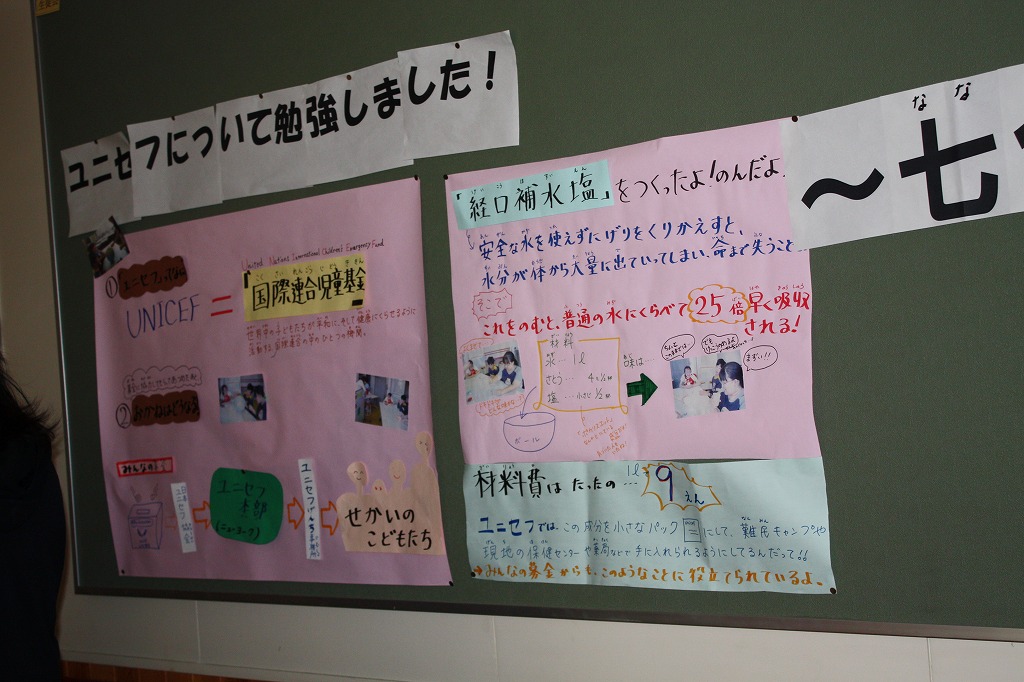 ユニセフについて勉強しました！
～七
なな
United Nations International Children's Emergency Fund
①ユニセフってなに
UNICEF
=
「国際連合児童基金」
こくさいれんごうじどうききん
世界中の子どもたちが平和に、そして健康にくらせるように
活動する、国際連合の中のひとつの機関。
②おかねはどうなる
みんなの
日本ユニセフ協会
ユニセフ
本部
(ニューヨーク)
せかいの
こどもたち
けいこうほすいえん
「経口補水塩」をつくったよ！のんだよ！
安全な水を使えずにげりをくりかえすと、
水分が体から大量に出ていってしまい、命まで失うことも…
そこで
これをのむと、普通の水にくらべて25倍早く吸収
される！
材料
水…1ℓ
さとう…
塩…小さじ1/2
味は…
ボール
まずい！！
材料費はたったの…
1ℓ
9えん
ユニセフでは、この成分を小さなパックにして、難民キャンプや
現地の保健センターや薬局などで手に入れられるようにしてるんだって！！
→みんなの募金からも、このようなことに役立てられているよ。